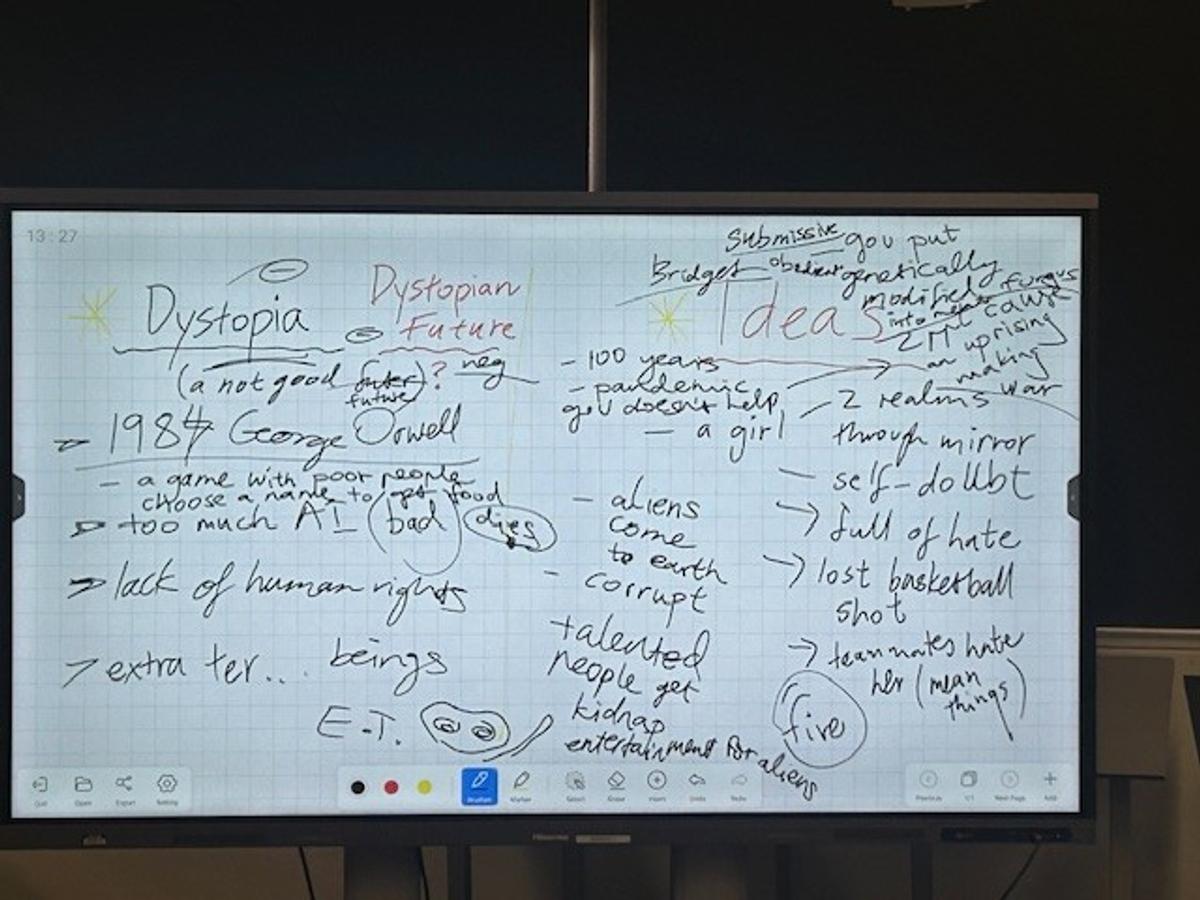 13:27
Dystopia
(a not good future)?
neg
Dystopian
Future
1984 George Orwell
- a game with poor people
choose a name to get food
too much AI (bad) dies
lack of human rights
extra ter... beings
E.T.
Submissive gov put
Bridget obedient genetically
modified fungus
into
Ideas
cause
an uprising
making
war
- 100 years
- pandemic
gov doesn't help
- a girl
- aliens
come
to earth
- corrupt
talented
people get
kidnap
entertainment for aliens
- 2 realms
through mirror
- self-doubt
full of hate
lost basketball
shot
teammates hate
her (mean
things)
five
Quit Open Export Setting
Select Erase Insert Undo Redo
Previous 1/1 Next Page Add
Hisense